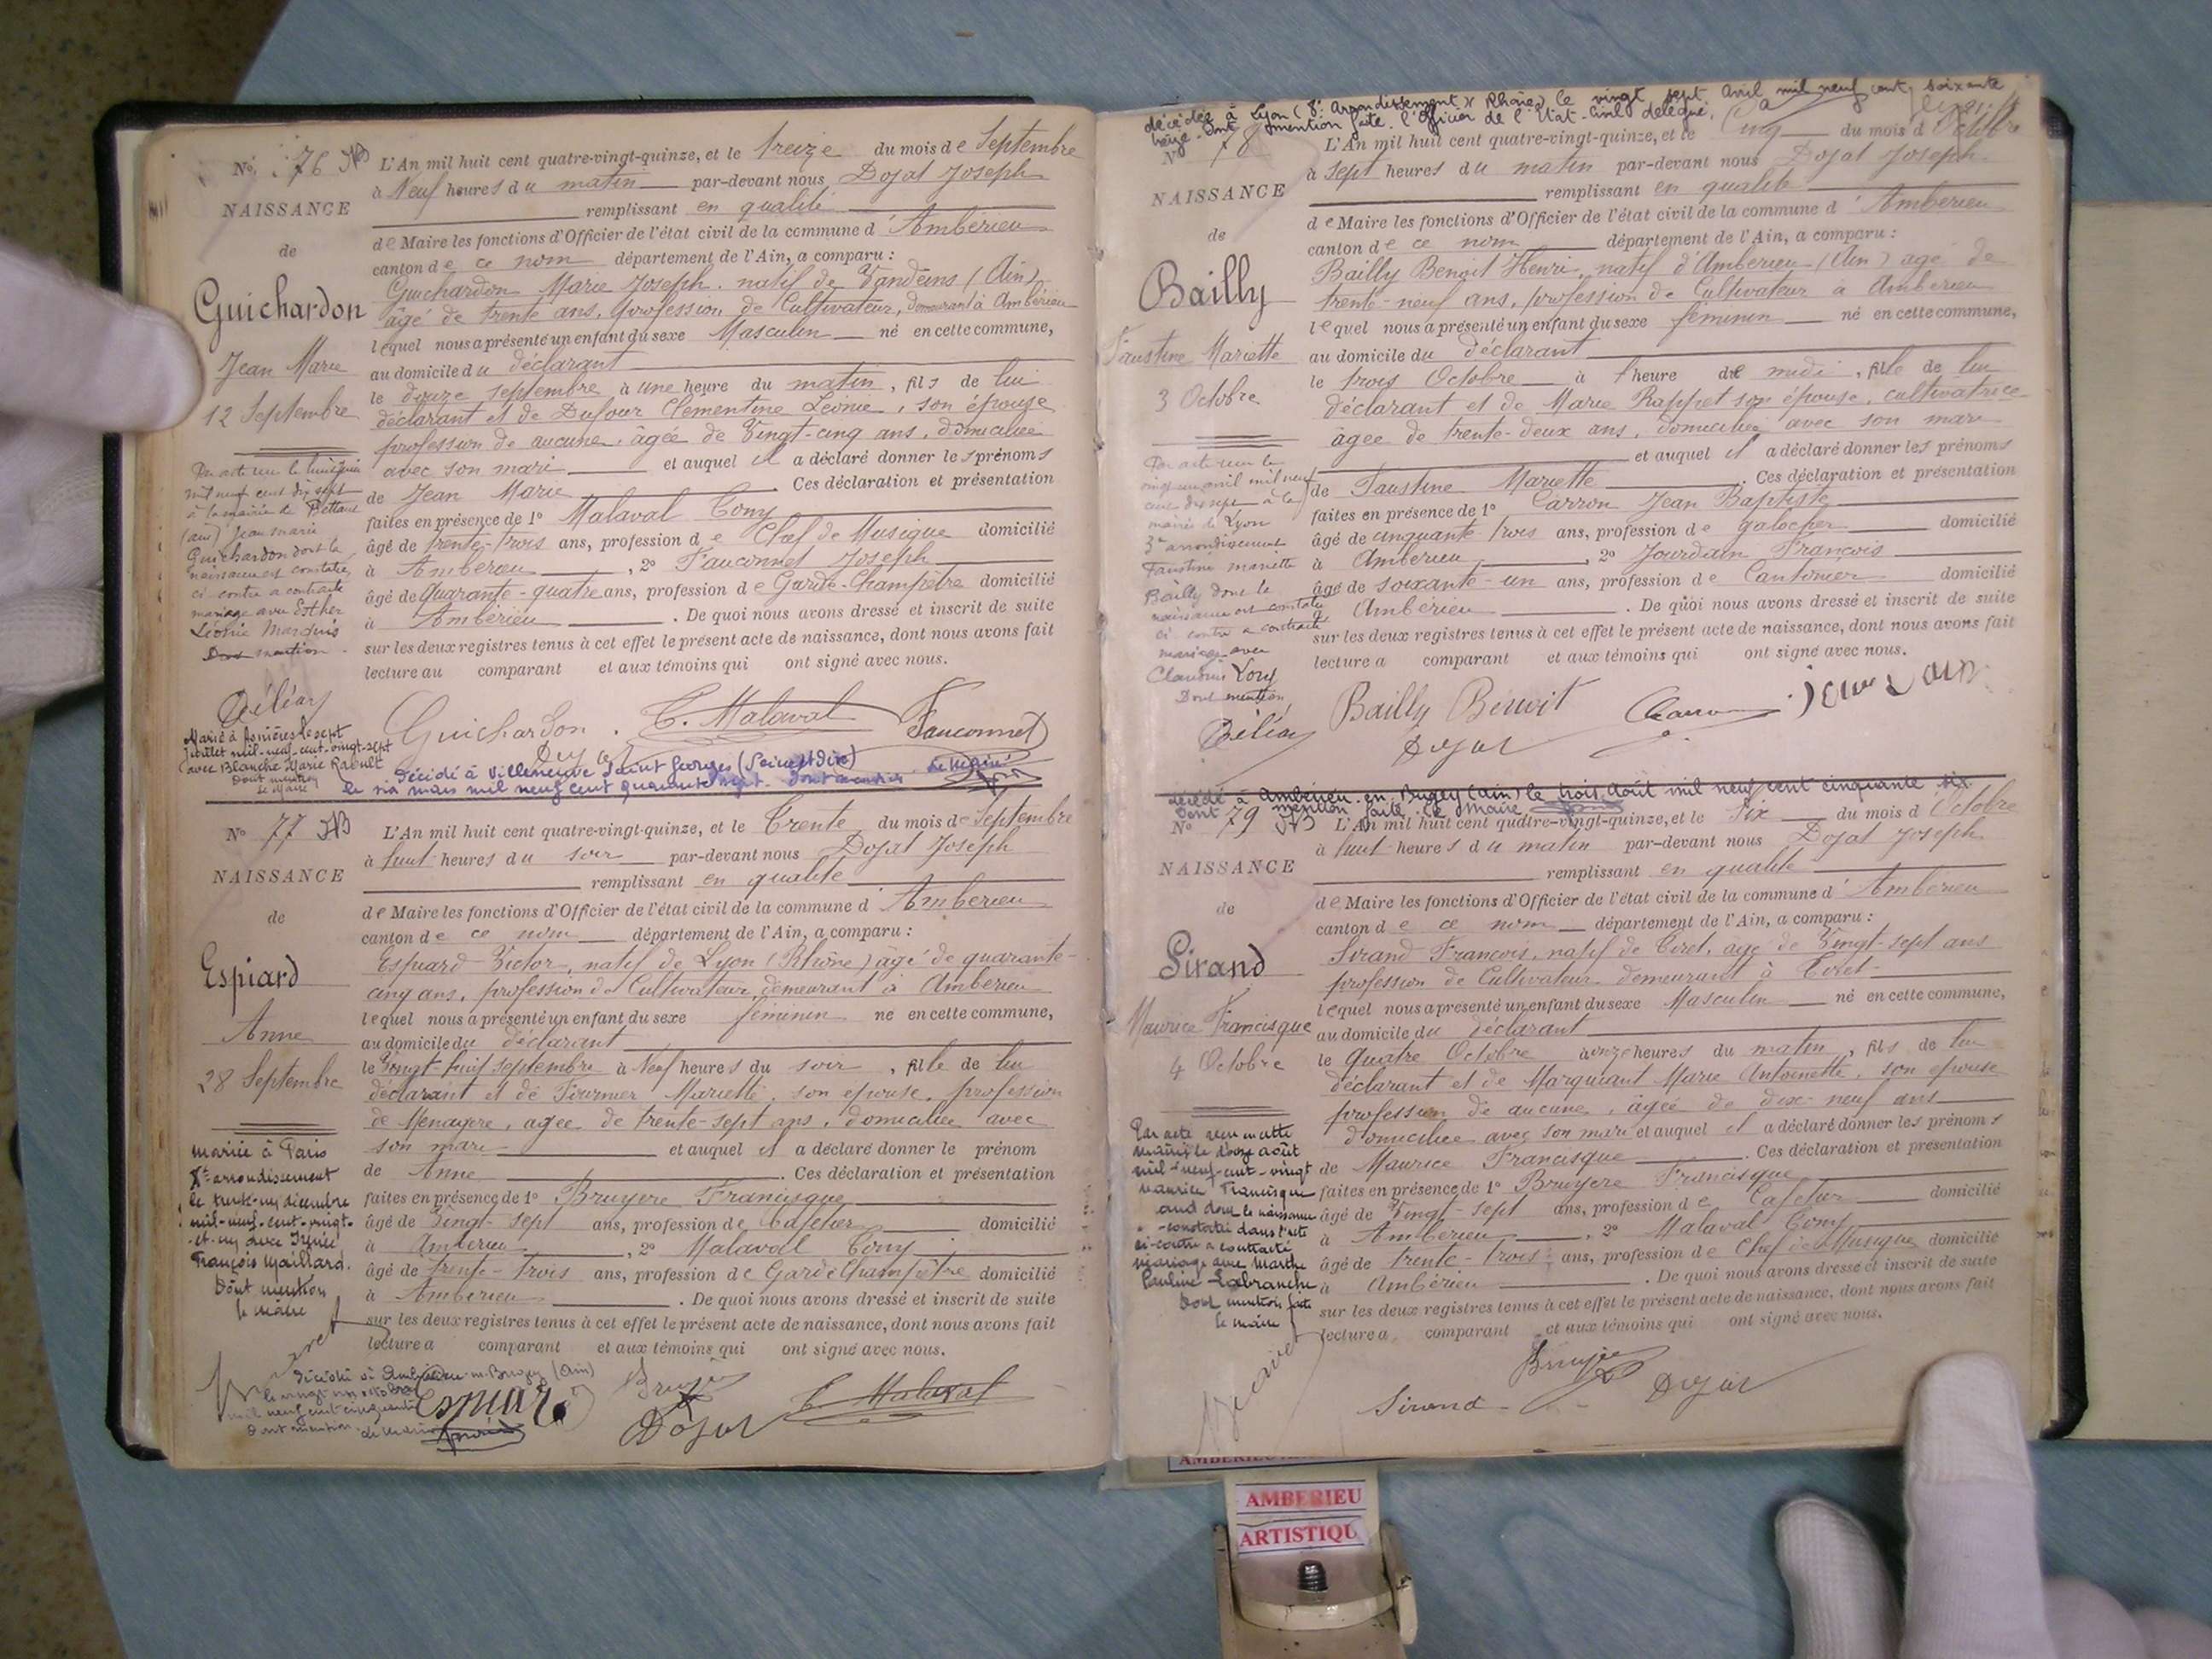 N° 76
L'An mil huit cent quatre-vingt-quinze, et le Treize du mois de Septembre
à Neuf heures du matin par-devant nous Dojat Joseph
NAISSANCE
remplissant en qualité
de Maire les fonctions d'Officier de l'état civil de la commune d'Ambérieu
de
canton de ce nom département de l'Ain, a comparu :
Guichardon Marie Joseph, natif de Vandeins (Ain)
Guichardon
âgé de trente ans, profession de Cultivateur, demeurant à Ambérieu
lequel nous a présenté un enfant du sexe Masculin né en cette commune,
Jean Marie
au domicile du déclarant
le douze septembre à une heure du matin, fils de lui
12 Septembre
déclarant et de Dufour Clémentine Léonie, son épouse
profession de aucune, âgée de Vingt-cinq ans, domiciliée
avec son mari et auquel il a déclaré donner les prénoms
de Jean Marie Ces déclaration et présentation
faites en présence de 1° Malaval Tony
âgé de trente-trois ans, profession de Chef de Musique domicilié
à Ambérieu, 2° Fauconnet Joseph
âgé de Quarante-quatre ans, profession de Garde-Champêtre domicilié
à Ambérieu. De quoi nous avons dressé et inscrit de suite
sur les deux registres tenus à cet effet le présent acte de naissance, dont nous avons fait
lecture au comparant et aux témoins qui ont signé avec nous.
mil neuf cent dix sept
à la mairie de Bettant
(ain) Jean marie
Guichardon dont la
naissance est constatée
ci contre a contracté
mariage avec Esther
Léonie Marquis
Dont mention
Guichardon C. Malaval Fauconnet
Dojat
Marié à Asnières le sept
juillet mil-neuf-cent-vingt-sept
avec Blanche Marie Raoult
Dont mention
Le Maire
décédé à Villeneuve Saint Georges (Seine et Oise)
le six mars mil neuf cent quarante sept. Dont mention
N° 77
L'An mil huit cent quatre-vingt-quinze, et le Trente du mois de Septembre
à huit heures du soir par-devant nous Dojat Joseph
NAISSANCE
remplissant en qualité
de Maire les fonctions d'Officier de l'état civil de la commune d'Ambérieu
de
canton de ce nom département de l'Ain, a comparu :
Espiard Victor, natif de Lyon (Rhône) âgé de quarante-
Espiard
cinq ans, profession de Cultivateur, demeurant à Ambérieu
lequel nous a présenté un enfant du sexe féminin né en cette commune,
Anne
au domicile du déclarant
le Vingt-huit septembre à Neuf heures du soir, fille de lui
28 Septembre
déclarant et de Fournier Mariette, son épouse, profession
de Ménagère, âgée de trente-sept ans, domiciliée avec
son mari et auquel il a déclaré donner le prénom
de Anne. Ces déclaration et présentation
faites en présence de 1° Bruyère Francisque
âgé de Vingt-sept ans, profession de Cafetier domicilié
à Ambérieu, 2° Malaval Tony
âgé de trente-trois ans, profession de Garde Champêtre domicilié
à Ambérieu. De quoi nous avons dressé et inscrit de suite
sur les deux registres tenus à cet effet le présent acte de naissance, dont nous avons fait
lecture a comparant et aux témoins qui ont signé avec nous.
mariée à Paris
Xe arrondissement
le trente-un décembre
mil-neuf-cent-vingt-
et-un avec Irénée
François Maillard.
Dont mention
le maire
décédée à Ambérieu-en-Bugey (Ain)
mil neuf cent cinquante
Dont mention
Espiard Bruyère Dojat C. Malaval
décédée à Lyon (8e Arrondissement) Rhône) le vingt sept Avril mil neuf cent soixante
treize. Dont mention faite. l'Officier de l'Etat-Civil délégué,
N° 78
L'An mil huit cent quatre-vingt-quinze, et le Cinq du mois d'Octobre
à sept heures du matin par-devant nous Dojat Joseph
NAISSANCE
remplissant en qualité
de Maire les fonctions d'Officier de l'état civil de la commune d'Ambérieu
de
canton de ce nom département de l'Ain, a comparu :
Bailly Benoit Henri, natif d'Ambérieu (Ain) âgé de
Bailly
trente-neuf ans, profession de Cultivateur à Ambérieu
lequel nous a présenté un enfant du sexe féminin né en cette commune,
Faustine Mariette
au domicile du déclarant
le trois Octobre à heure de midi, fille de lui
3 Octobre
déclarant et de Marie Rappet son épouse, cultivatrice
âgée de trente-deux ans, domiciliée avec son mari
et auquel il a déclaré donner les prénoms
de Faustine Mariette. Ces déclaration et présentation
faites en présence de 1° Carron Jean Baptiste
âgé de cinquante trois ans, profession de galocher domicilié
à Ambérieu, 2° Jourdain François
âgé de soixante-un ans, profession de Cantonier domicilié
à Ambérieu. De quoi nous avons dressé et inscrit de suite
sur les deux registres tenus à cet effet le présent acte de naissance, dont nous avons fait
lecture a comparant et aux témoins qui ont signé avec nous.
Par acte reçu le
vingt un avril mil neuf
cent dix sept à la
mairie de Lyon
3e arrondissement
Faustine mariette
Bailly dont la
naissance est constatée
ci contre a contracté
mariage avec
Claudius Louy
Dont mention
Bailly Benoit
Dojat
décédé à Ambérieu-en-Bugey (Ain) le trois août mil neuf cent cinquante six
Dont mention faite. Le Maire
N° 79
L'An mil huit cent quatre-vingt-quinze, et le Six du mois d'Octobre
à huit heures du matin par-devant nous Dojat Joseph
NAISSANCE
remplissant en qualité
de Maire les fonctions d'Officier de l'état civil de la commune d'Ambérieu
de
canton de ce nom département de l'Ain, a comparu :
Sirand François, natif de Tiret, âgé de Vingt-sept ans
Sirand
profession de Cultivateur demeurant à Tiret
lequel nous a présenté un enfant du sexe Masculin né en cette commune,
Maurice Francisque
au domicile du déclarant
le Quatre Octobre à onze heures du matin, fils de lui
4 Octobre
déclarant et de Marguiant Marie Antoinette, son épouse
profession de aucune, âgée de dix-neuf ans
domiciliée avec son mari et auquel il a déclaré donner les prénoms
de Maurice Francisque. Ces déclaration et présentation
faites en présence de 1° Bruyère Francisque
âgé de Vingt-sept ans, profession de Cafetier domicilié
à Ambérieu, 2° Malaval Tony
âgé de trente-trois ans, profession de Chef de Musique domicilié
à Ambérieu. De quoi nous avons dressé et inscrit de suite
sur les deux registres tenus à cet effet le présent acte de naissance, dont nous avons fait
lecture a comparant et aux témoins qui ont signé avec nous.
Par acte reçu en cette
mairie le douze août
mil-neuf-cent-vingt
Maurice Francisque
dont la naissance
constatée dans l'acte
ci-contre a contracté
mariage avec Marthe
Pauline Labranche
Dont mention faite
le maire
Bruyère
Sirand Dojat
AMBERIEU
ARTISTIQU